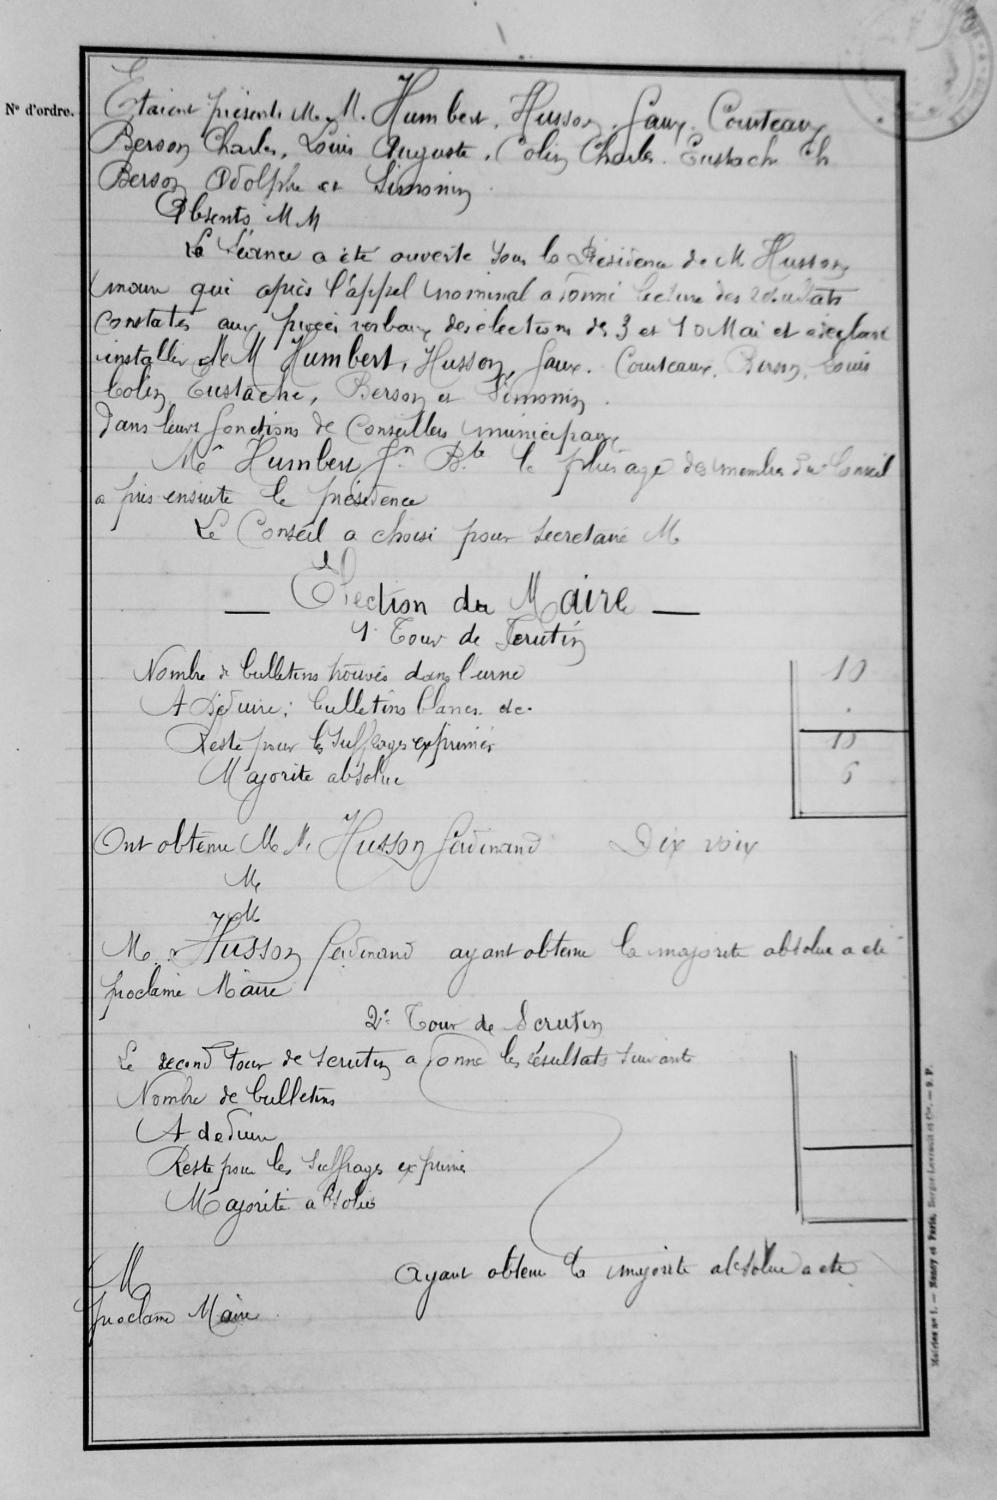 N° d'ordre.
Etaient présents M.M. Humbert, Husson, Gaux, Courteaux
Berson Charles, Louis Auguste, Colin Charles, Eustache Ch
Berson Adolphe et Simonin.
Absents MM
La Séance a été ouverte sous la Présidence de M Husson,
maire qui après l'appel nominal a donné lecture des résultats
constatés aux procès verbaux des élections des 3 et 10 Mai et a déclaré
installer MM Humbert, Husson, Gaux, Courteaux, Berson, Louis
Colin, Eustache, Berson et Simonin.
Dans leurs fonctions de Conseillers municipaux
Mr Humbert Jn Bte le plus agé des membres du Conseil
a pris ensuite la présidence
Le Conseil a choisi pour secretaire M
— Election du Maire —
1. Tour de Scrutin
Nombre de bulletins trouvés dans l'urne 10
A Déduire; bulletins blancs etc.
Reste pour les suffrages exprimés 10
Majorité absolue 6
Ont obtenu M M. Husson Ferdinand Dix voix
M
M
M. Husson Ferdinand ayant obtenu la majorité absolue a été
proclamé Maire
2e Tour de Scrutin
Le second tour de scrutin a donné les résultats suivants
Nombre de bulletins
A deduire
Reste pour les suffrages exprimés
Majorité absolue
M ayant obtenu la majorité absolue a été
proclamé Maire
Mairies n° 1. — Nancy et Paris, Berger-Levrault et Cie. — 9. P.